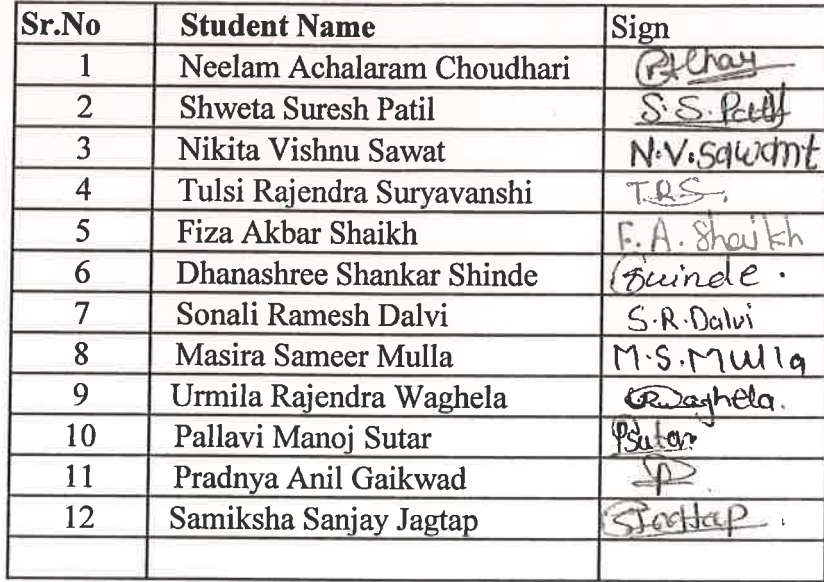 Sr.No Student Name Sign
1 Neelam Achalaram Choudhari
2 Shweta Suresh Patil S.S.Patil
3 Nikita Vishnu Sawat N.V.Sawant
4 Tulsi Rajendra Suryavanshi T.R.S.
5 Fiza Akbar Shaikh F.A.Shaikh
6 Dhanashree Shankar Shinde
7 Sonali Ramesh Dalvi S.R.Dalvi
8 Masira Sameer Mulla M.S.Mulla
9 Urmila Rajendra Waghela
10 Pallavi Manoj Sutar PSutar
11 Pradnya Anil Gaikwad
12 Samiksha Sanjay Jagtap